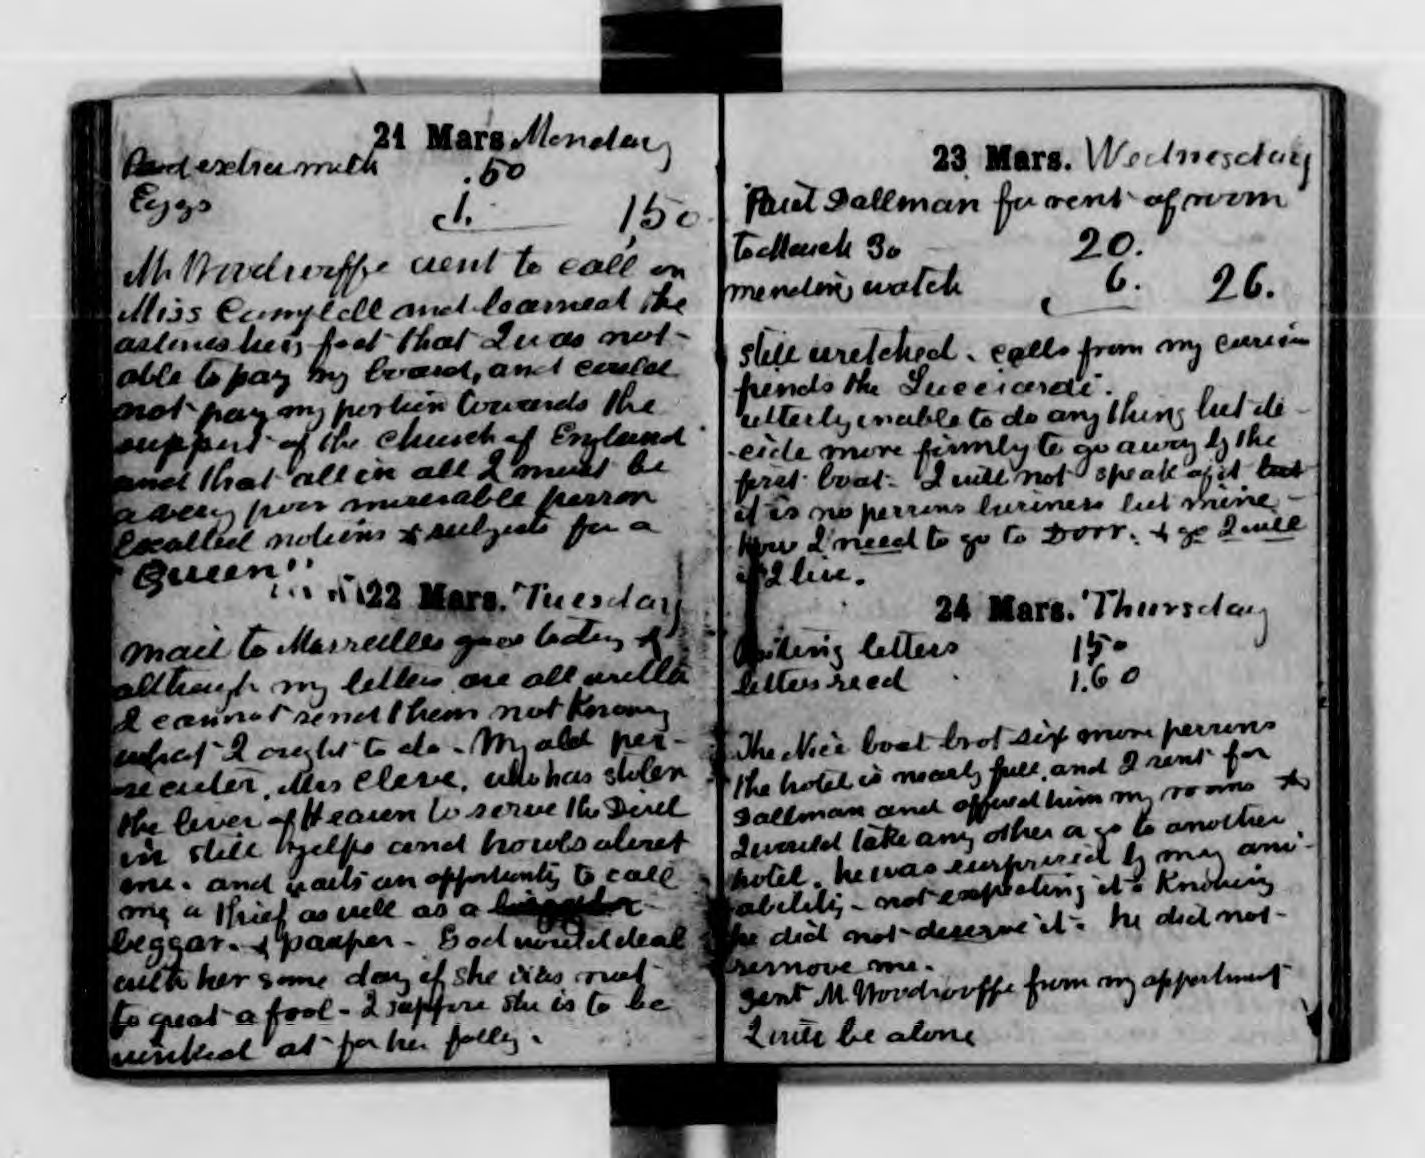 21 Mars Monday
Paid extra milk .50
Eggs 1. 1,50
M. Woodroffe went to call on
Miss Campbell and learned the
astonishing fact that I was not
able to pay my board, and could
not pay my portion towards the
support of the church of England
and that all in all I must be
a very poor miserable person
Exalted notions & subjects for a
Queen"
22 Mars. Tuesday
Mail to Marseilles goes today &
although my letters are all written
I cannot send them not knowing
what I ought to do. My old per-
secuter, Mrs Cleve, who has stolen
the liver of Heaven to serve the Divel
in still yelps and howls about
me. and waits an opportunity to call
me a thief as well as a
beggar. & pauper - God would deal
with her some day if she was not
to great a fool - I suppose she is to be
winked at for her folly.
23 Mars. Wednesday
Paid Dallman for rent of room
to March 30 20.
mending watch 6. 26.
still wretched. calls from my
friends the Lucciardi.
utterly unable to do any thing but de-
cide more firmly to go away by the
first boat. I will not speak of it but
it is no persons business but mine -
how I need to go to Dorr. & go I will
if I live.
24 Mars. Thursday
letters 150
letters recd 1.60
The Nice boat brot six more persons
the hotel is nearly full, and I sent for
Dallman and offered him my rooms &
I would take any other or go to another
hotel. he was surprised by my ami-
ability - not expecting it & Knowing
he did not deserve it. he did not
remove me.
Sent M. Woodrooffe from my appartment
I will be alone